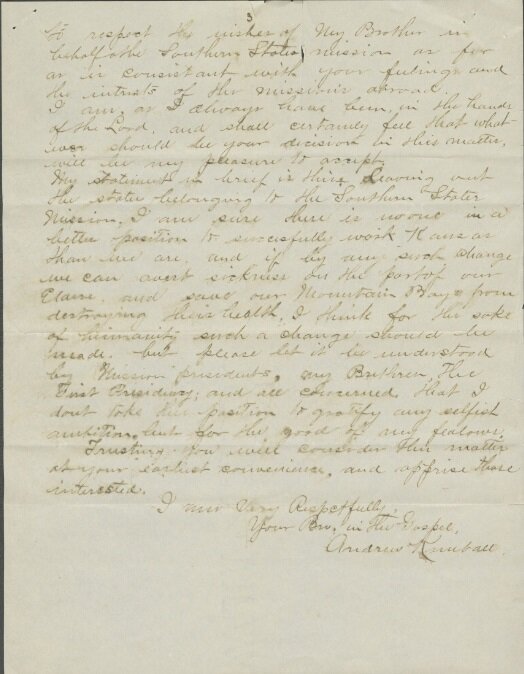 3
to respect the wishes of My Brother in
behalf of the Southern States mission as far
as is consistant with your feelings and
the intrests of the missions abroad.
I am, as I always have been, in the hands
of the Lord, and shall certainly feel that what-
ever should be your decision in this matter,
will be my pleasure to accept.
My statment in brief is this, leaving out
the states belonging to the Southern States
Mission, I am sure there is no one in a
better position to succesfully work Kansas
than we are, and if by any such change
we can avert sickness on the part of our
Elders, and save our Mountain Boys from
destroying their health, I think for the sake
of humanity such a change should be
made. but please let it be understood
by Mission presidents, my Brethren, the
First Presidency, and all concerned, that I
dont take this position to gratify any selfish
ambition, but for the good of my fealows.
Trusting you will consider this matter
at your earliest convenience, and apprise those
interested.
I am Very Respectfully,
Your Bro. in the Gospel,
Andrew Kimball